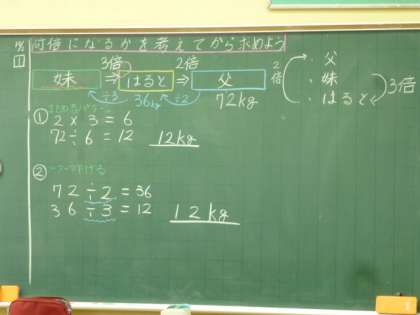 何倍になるかを考えてから求めよう
1
3倍 2倍
妹 ⇒ はると ⇒ 父
÷3 36kg ÷2 72kg
2倍
・父
・妹
・はると
3倍
①
2×3=6
72÷6=12 12kg
②
72÷2=36
36÷3=12 12kg